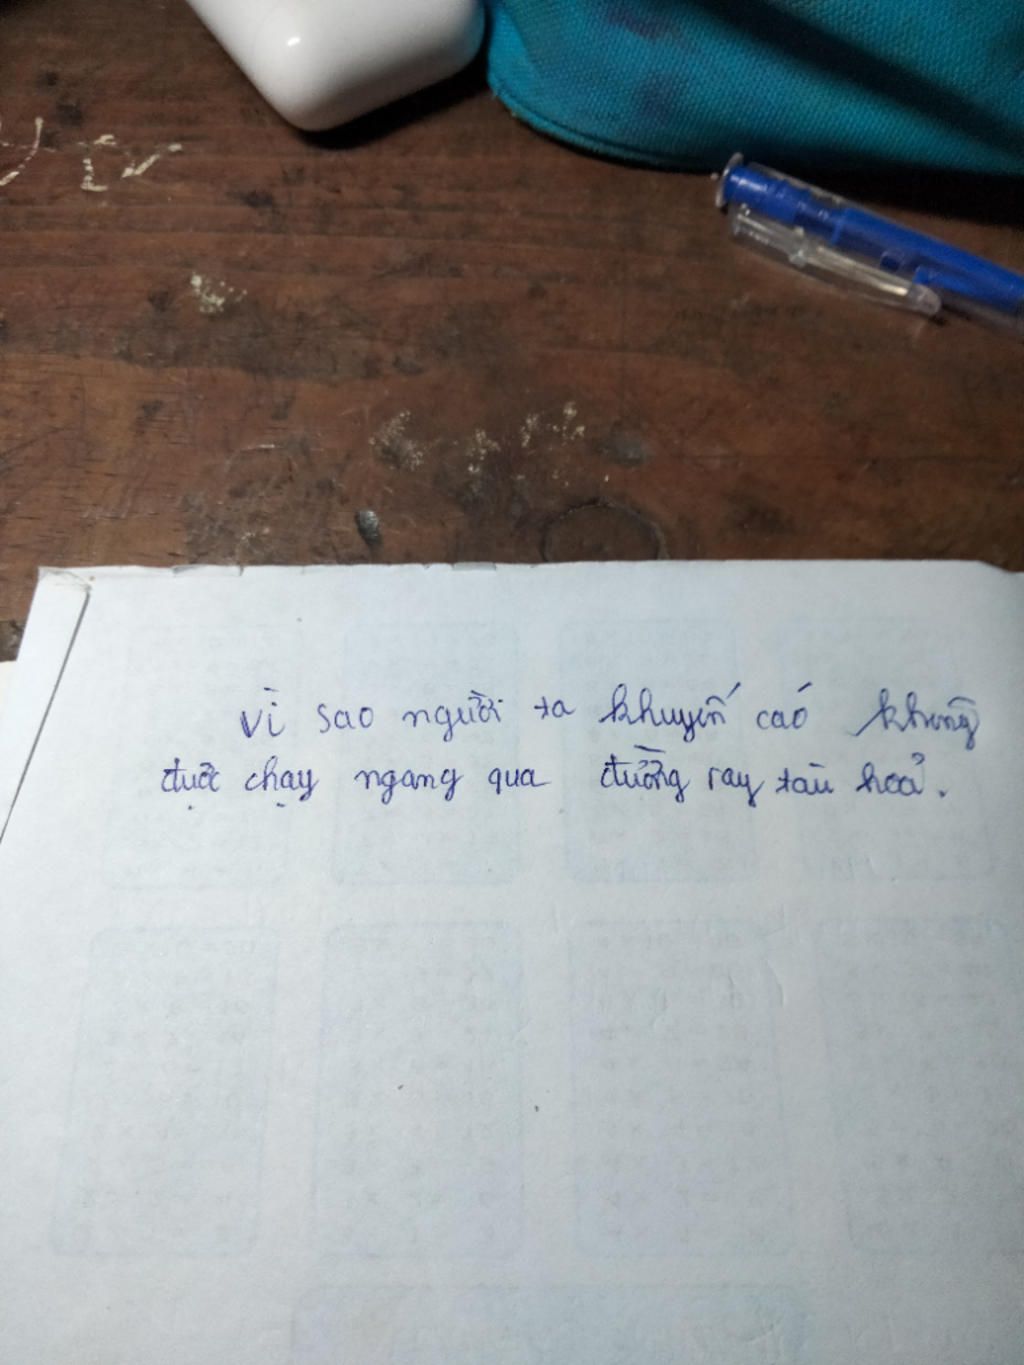 vì sao người ta khuyến cáo không
được chạy ngang qua đường ray tàu hoả.